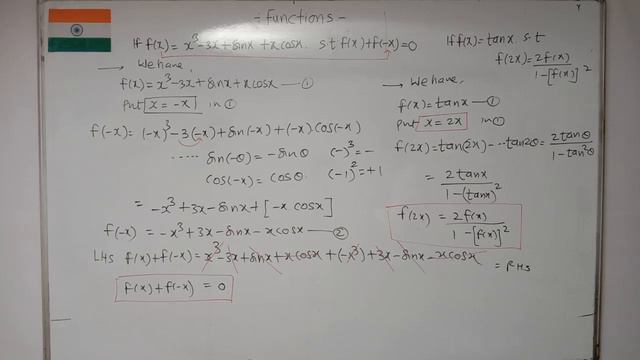 = Functions -
If f(x) = x³-3x+sinx+xcosx. s.t f(x)+f(-x)=0
→ We have,
f(x) = x³-3x+sinx+xcosx —①
Put x = -x in ①
f(-x) = (-x)³-3(-x)+sin(-x)+(-x).cos(-x)
..... sin(-θ) = -sinθ (-)³ = -
cos(-x) = cosθ (-1)² = +1
= -x³+3x-sinx+[-x cosx]
f(-x) = -x³+3x-sinx-xcosx —②
LHS f(x)+f(-x) = x³-3x+sinx+xcosx+(-x³)+3x-sinx-xcosx = RHS
f(x)+f(-x) = 0
If f(x)=tanx. s.t
f(2x) = 2f(x)/1-[f(x)]²
→ We have,
f(x) = tanx —①
Put x = 2x in ①
f(2x) = tan(2x) -- ... tan2θ = 2tanθ/1-tan²θ
= 2tanx/1-(tanx)²
f(2x) = 2f(x)/1-[f(x)]²